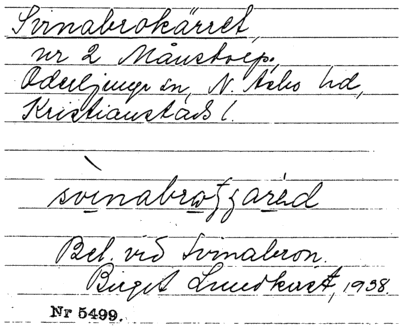 Svinabrokärret,
nr 2 Månstorp,
Oderljunga sn, N. Åsbo hd,
Kristianstads l.
Bel. vid Svinabron.
Birgit Lundkvist, 1938.
Nr 5499.